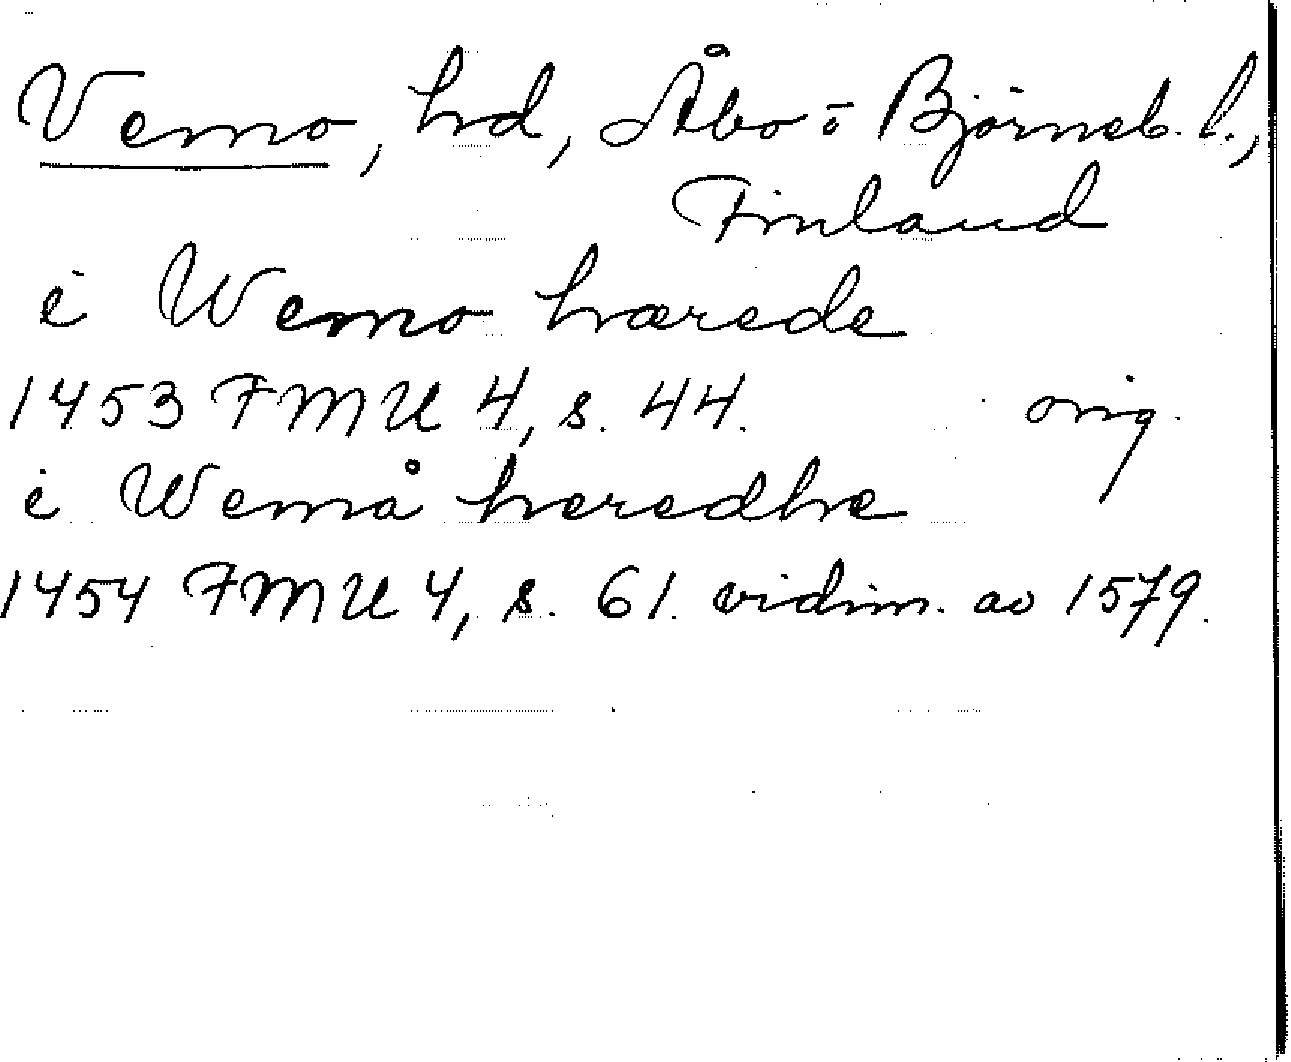 Vemo, hd, Åbo o Björneb. l.,
Finland
i Wemo hærede
1453 FMU 4, s. 44. orig.
i Wemå heredhe
1454 FMU 4, s. 61. vidim. av 1579.